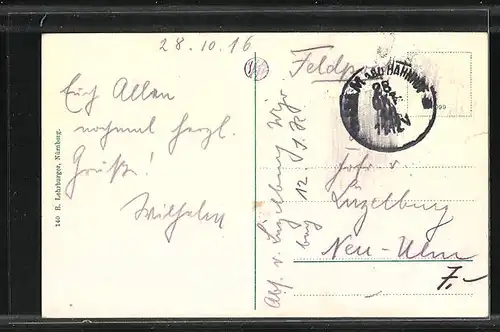 28.10.16
Euch Allen
nochmal herzl.
Grüße!
Wilhelm
140 R. Lehrburger, Nürnberg.
Feldp
BAHNHOF
Abs. v. Lüzelburg
12.
v.
Lüzelburg
Neu-Ulm
7.-